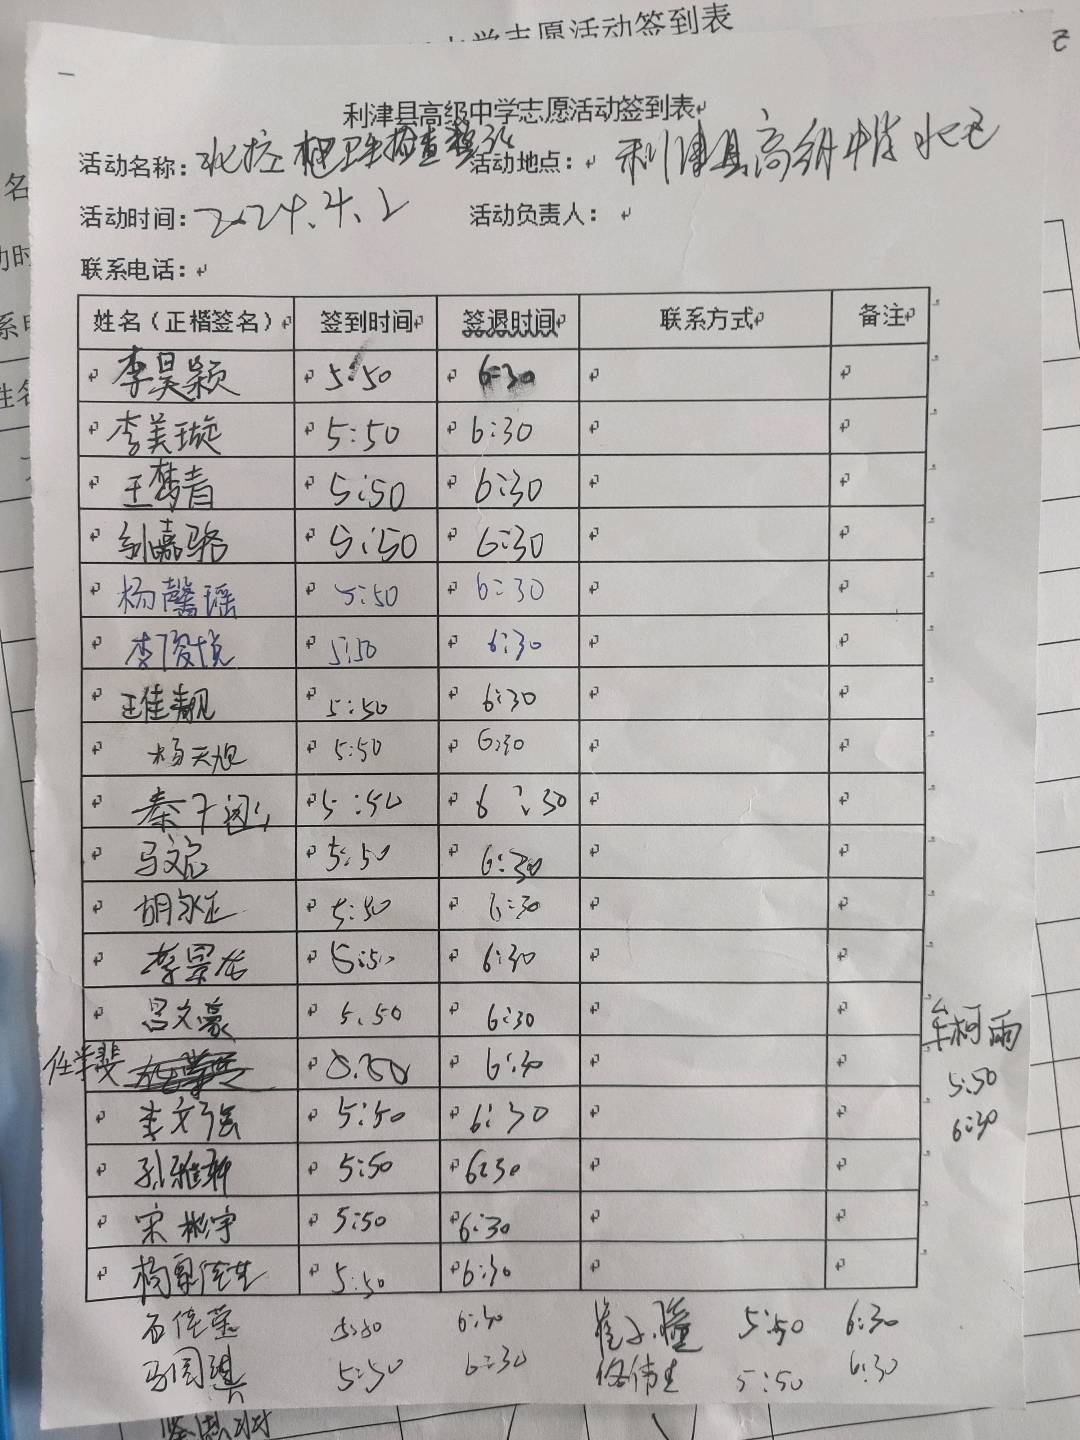 中学志愿活动签到表
利津县高级中学志愿活动签到表
活动名称： 卫生检查 活动地点： 利津县高级中学
活动时间：2024.4.2 活动负责人：
联系电话：
姓名（正楷签名） 签到时间 签退时间 联系方式 备注
李昊颖 5:50 6:30
李美璇 5:50 6:30
王梦青 5:50 6:30
刘嘉骆 5:50 6:30
杨馨瑶 5:50 6:30
李俊悦 5:50 6:30
王佳靓 5:50 6:30
杨天旭 5:50 6:30
秦子 5:50 6:30
马文 5:50 6:30
胡永正 5:50 6:30
李景 5:50 6:30
吕文豪 5:50 6:30
任学斐 5:50 6:30
李文强 5:50 6:30
孙雅轩 5:50 6:30
宋彬宇 5:50 6:30
杨 5:50 6:30
牟柯雨
5:50
6:30
石佳莹 5:50 6:30 崔子瞳 5:50 6:30
马国 5:50 6:30 伟 5:50 6:30